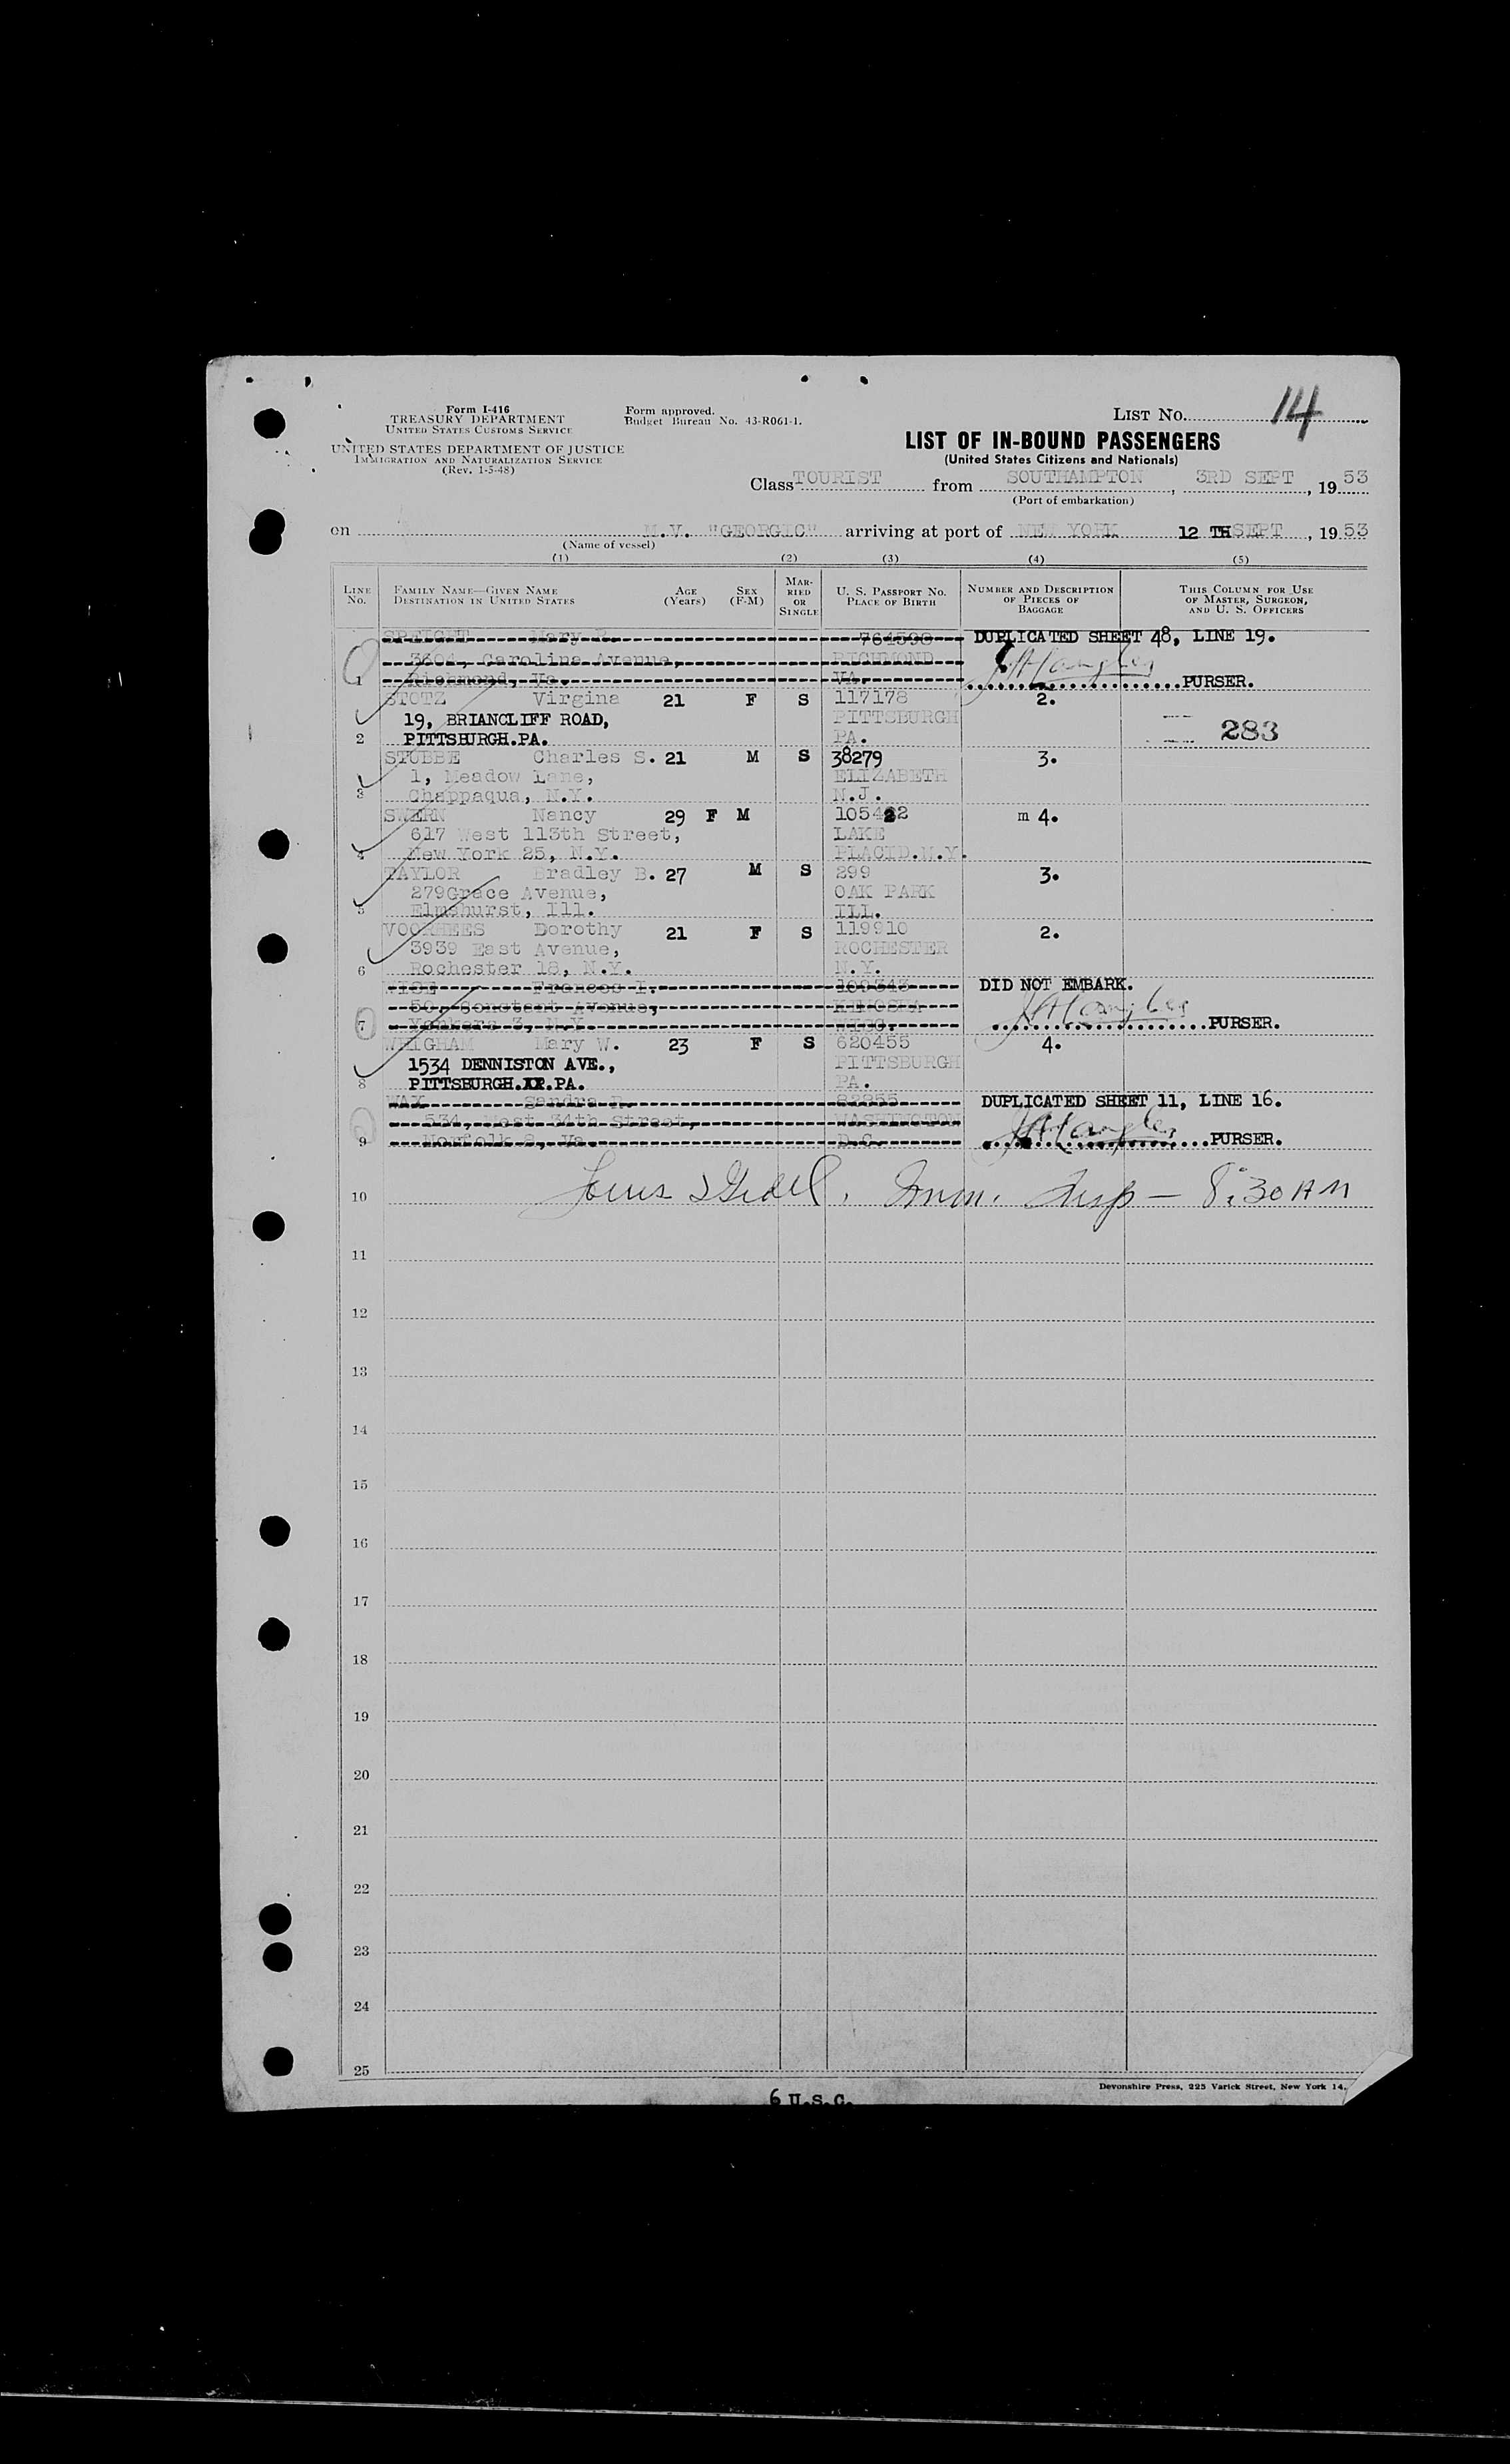 Form I-416
TREASURY DEPARTMENT
UNITED STATES CUSTOMS SERVICE
UNITED STATES DEPARTMENT OF JUSTICE
IMMIGRATION AND NATURALIZATION SERVICE
(Rev. 1-5-48)
Form approved.
Budget Bureau No. 43-R061-1.
LIST NO. 14
LIST OF IN-BOUND PASSENGERS
(United States Citizens and Nationals)
Class TOURIST from SOUTHAMPTON, 3RD SEPT, 1953
(Port of embarkation)
on M.V. "GEORGIC" arriving at port of NEW YORK 12 TH SEPT, 1953
(Name of vessel)
(1) (2) (3) (4) (5)
LINE NO. FAMILY NAME—GIVEN NAME DESTINATION IN UNITED STATES AGE (Years) SEX (F-M) MARRIED OR SINGLE U. S. PASSPORT NO. PLACE OF BIRTH NUMBER AND DESCRIPTION OF PIECES OF BAGGAGE THIS COLUMN FOR USE OF MASTER, SURGEON, AND U. S. OFFICERS
SPEIGHT Mary R. 764590 DUPLICATED SHEET 48, LINE 19.
3604, Carolina Avenue, RICHMOND
1 Richmond, Va. VA. PURSER.
STOTZ Virgina 21 F S 117178 2.
19, BRIANCLIFF ROAD, PITTSBURGH 283
2 PITTSBURGH.PA. PA.
STUBBE Charles S. 21 M S 38279 3.
1, Meadow Lane, ELIZABETH
3 Chappaqua, N.Y. N.J.
SWERN Nancy 29 F M 105422 m 4.
617 West 113th Street, LAKE
4 New York 25, N.Y. PLACID.N.Y.
TAYLOR Bradley B. 27 M S 299 3.
279Grace Avenue, OAK PARK
5 Elmshurst, Ill. ILL.
VOORHEES Dorothy 21 F S 119910 2.
3939 East Avenue, ROCHESTER
6 Rochester 18, N.Y. N.Y.
WISE Frances I. 109343 DID NOT EMBARK.
50, Constant Avenue, KENOSHA
7 Yonkers 3, N.Y. WISC. PURSER.
WHIGHAM Mary W. 23 F S 620455 4.
1534 DENNISTON AVE., PITTSBURGH
8 PITTSBURGH. .PA. PA.
WAX Sandra R. 82855 DUPLICATED SHEET 11, LINE 16.
534, West 34th Street, WASHINGTON
9 Norfolk 8, Va. D.C. PURSER.
10 Imm. Insp — 8:30 AM
11
12
13
14
15
16
17
18
19
20
21
22
23
24
25
Devonshire Press, 225 Varick Street, New York 14.
6 U.S.C.